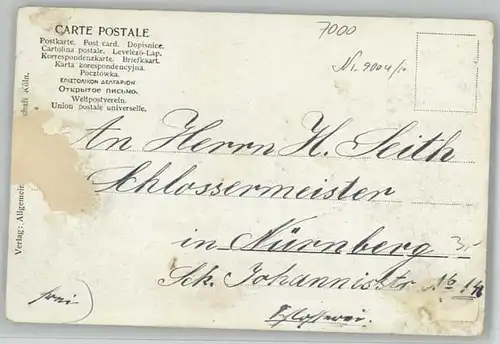 CARTE POSTALE
Postkarte. Post card. Dopisnice.
Cartolina postale. Levelező-Lap.
Korrespondenzkarte. Briefkaart.
Karta korespondencyjna.
Pocztówka.
ΕΠΙΣΤΟΛΙΚΟΝ ΔΕΛΤΑΡΙΟΝ
Открытое письмо.
Weltpostverein.
Union postale universelle.
7000
Verlag: Allgemein
chaft Köln.
An Herrn H. Seith
Schlossermeister
in Nürnberg
Sct. Johannisstr No 14
frei
Schlosserei.